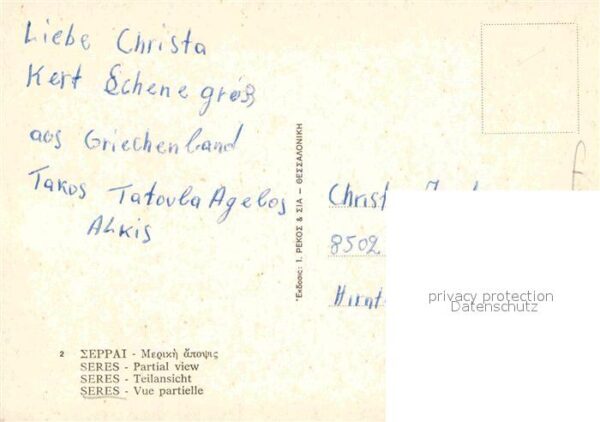 Liebe Christa
Kert Schene größ
aos Griechenland
Takos Tatoula Agelos
Alkis
Ἔκδοσις: Ι. ΡΕΚΟΣ & ΣΙΑ – ΘΕΣΣΑΛΟΝΙΚΗ
Christ
8502
privacy protection
Datenschutz
2 ΣΕΡΡΑΙ - Μερικὴ ἄποψις
SERES - Partial view
SERES - Teilansicht
SERES - Vue partielle